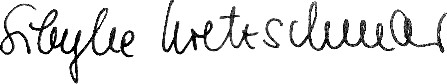 Sibylle Kretzschmar